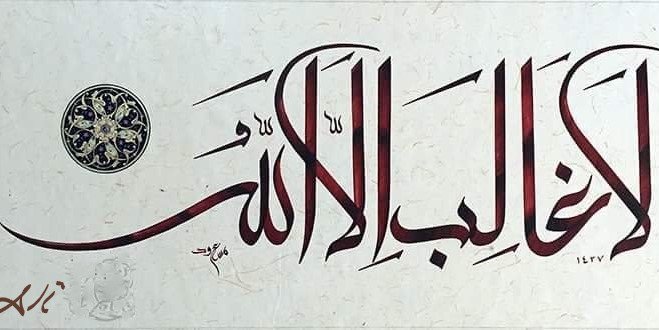 لَا غَالِبَ إِلَّا اللّٰهُ
١٤٣٧